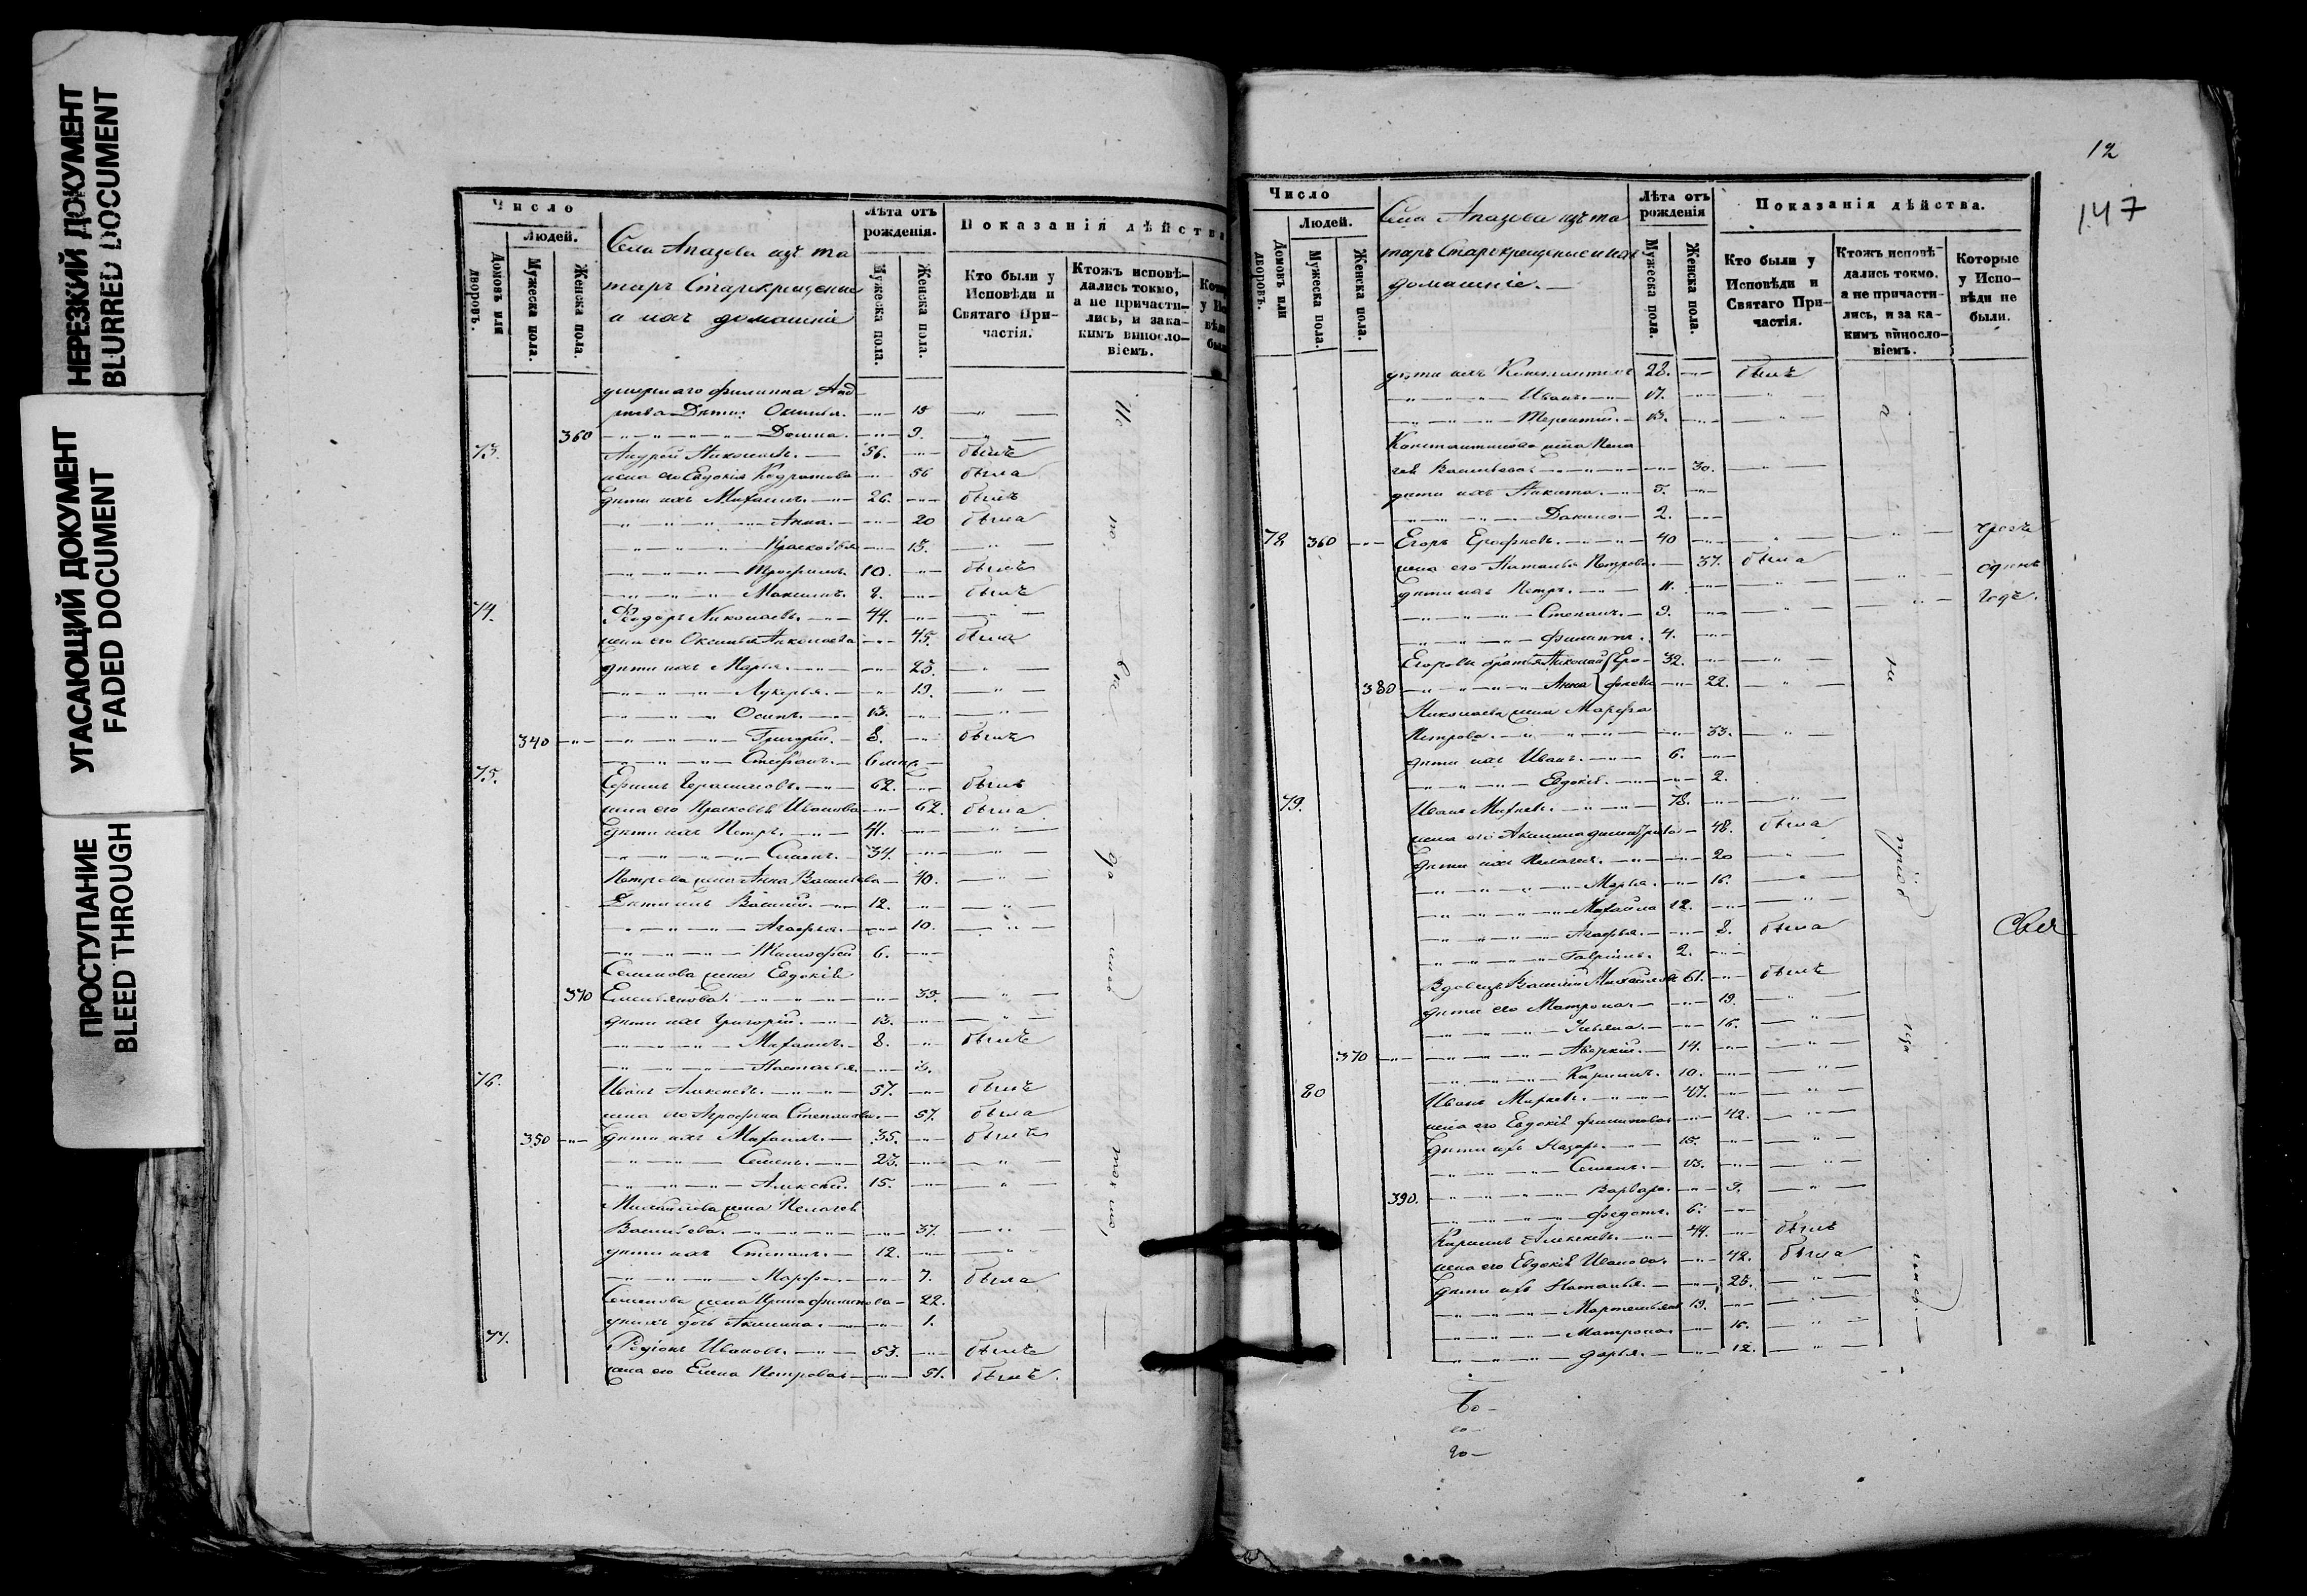 НЕРЕЗКИЙ ДОКУМЕНТ
BLURRED DOCUMENT
УГАСАЮЩИЙ ДОКУМЕНТ
FADED DOCUMENT
ПРОСТУПАНИЕ
BLEED THROUGH
Число
Домовъ или дворовъ.
Людей.
Мужеска пола.
Женска пола.
Села Апазова изъ та
таръ Старокрещеные
и ихъ домашніе
Лѣта отъ рожденія.
Мужеска пола.
Женска пола.
Показанія дѣйства
Кто были у Исповѣди и Святаго При-частія.
Ктожъ исповѣ-дались токмо, а не причасти-лись, и зака-кимъ виносло-віемъ.
умершаго Филиппа Анд
Дѣти: Оксинья. 15
360 Домна. 9.
73. Андрей Николаевъ. 56. былъ
жена его Евдокія 56 была
дѣти ихъ Михаилъ. 26. былъ
Анна. 20 была
Прасковья 13.
Трофимъ. 10. былъ
Максимъ. 8. былъ
74. Ѳеодоръ Николаевъ. 44.
жена его Оксинья Николаева 45. была
дѣти ихъ Марья. 23.
Лукерья. 19.
Осипъ. 13.
340 Григорій. 8. былъ
Стефанъ. 6 мѣс.
75. Ефимъ Герасимовъ. 62. былъ
жена его Прасковья Иванова 62. была
дѣти ихъ Петръ. 41.
Семенъ. 34.
Петрова жена Анна Васильева 40.
Дѣти ихъ Василій. 12.
Агафья. 10.
Тимофей 6.
Семенова жена Евдокія
370 Емельянова. 35.
дѣти ихъ Григорій. 13.
Михаилъ. 8. былъ
Настасья. 3.
76. Иванъ Алексѣевъ. 57. былъ
жена его Агрофина Степанова. 57. была
350 дѣти ихъ Михаилъ. 35. былъ
Семенъ. 23.
Алексѣй. 15.
Михайлова жена Пелагея
Васильева. 37.
дѣти ихъ Степанъ. 12.
Марфа. 7. была
Семенова жена Ирина Филипова 22.
у нихъ дочь Акилина. 1.
77. Родіонъ Ивановъ. 53. былъ
жена его Елена Петрова 51. былъ.
12
147
Число
Домовъ или дворовъ.
Людей.
Мужеска пола.
Женска пола.
Села Апазова изъ та
таръ Старокрещеные и ихъ
домашніе.
Лѣта отъ рожденія
Мужеска пола.
Женска пола.
Показанія дѣйства.
Кто были у Исповѣди и Святаго При-частія.
Ктожъ исповѣ-дались токмо. а не причасти-лись, и за ка-кимъ виносло-віемъ.
Которые у Испо-вѣди не были.
дѣти ихъ Константинъ 28. былъ
Иванъ. 17.
Терентій. 13.
Константинова жена Пела
гея Васильева 30.
дѣти ихъ Никита. 5.
Данило. 2.
78 360 Егоръ Ерофѣевъ. 40
жена его Наталья Петрова. 37. была
дѣти ихъ Петръ. 11.
одинъ
годъ.
Степанъ. 9.
Филиппъ. 4.
Егоровы братья Николай Еро- 32.
380 Анна фѣевы 22.
Николаева жена Марфа
Петрова. 33.
дѣти ихъ Иванъ. 6.
Евдокія. 2.
79. Иванъ 78.
жена его Акилина 48. была
дѣти ихъ Пелагея. 20
Марья. 16.
Михайла 12.
Агафья. 8. была
Гаврiилъ. 2.
Вдовецъ Василій Михайловъ 61. былъ
дѣти его Матрона. 19.
Ульяна. 16.
370 Аверкій. 14.
Кирилъ. 10.
80 Иванъ 47.
жена его Евдокія Филипова 42.
дѣти ихъ Назаръ. 15.
Семенъ. 13.
390. Варвара. 9.
Федотъ. 6.
Кирилъ Алексѣевъ. 44. былъ
жена его Евдокія Иванова. 42. была
дѣти ихъ Наталья. 25.
19.
Матрона. 16.
Дарья. 12.